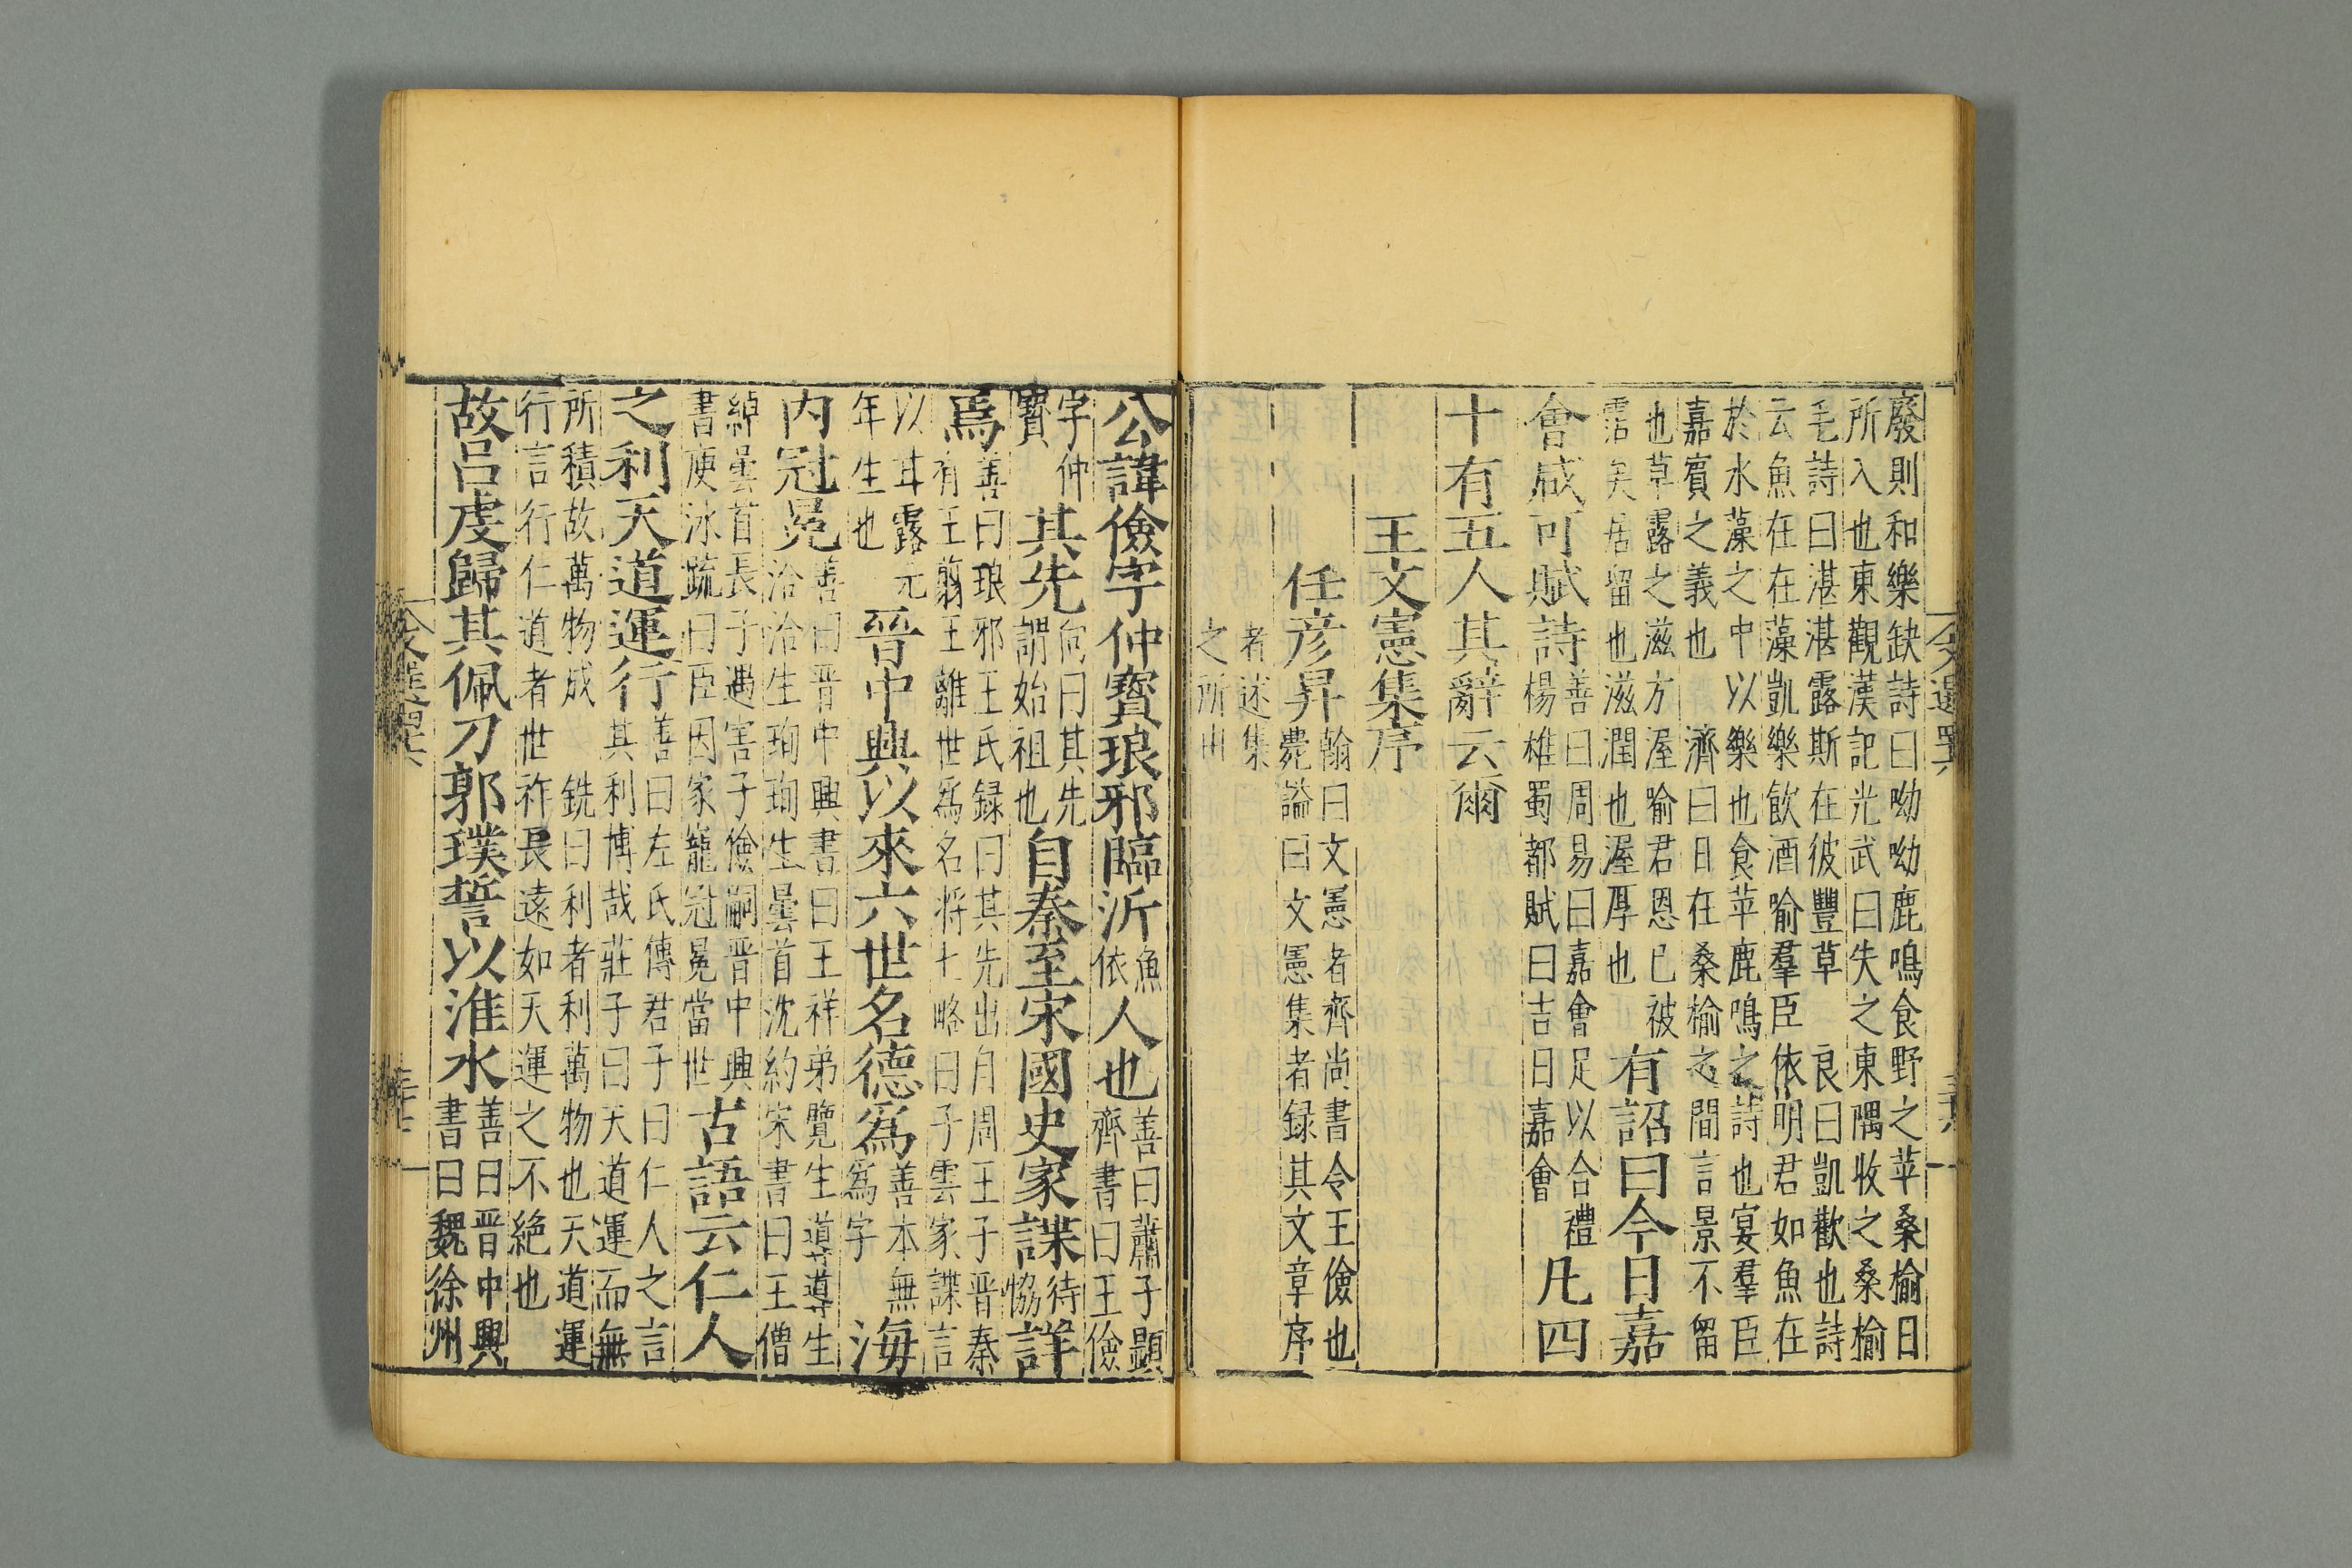 廢則和樂缺詩曰呦呦鹿鳴食野之苹桑榆日
所入也東觀漢記光武曰失之東隅收之桑榆
毛詩曰湛湛露斯在彼豐草 良曰凱歡也詩
云魚在在藻凱樂飲酒喻羣臣依明君如魚在
於水藻之中以樂也食苹鹿鳴之詩也宴羣臣
嘉賓之義也 濟曰日在桑榆之間言景不留
也草露之滋方渥喻君恩已被
霑矣居留也滋潤也渥厚也
有詔曰今日嘉
會咸可賦詩
善曰周易曰嘉會足以合禮
楊雄蜀都賦曰吉日嘉會
凡四
十有五人其辭云爾
王文憲集序
任彦昇
翰曰文憲者齊尚書令王儉也
薨謚曰文憲集者録其文章序
者述集
之所由
公諱儉字仲寶琅邪臨沂
魚
依
人也
善曰蕭子顯
齊書曰王儉
字仲
寶
其先
向曰其先
謂始祖也
自秦至宋國史家諜
待
恊
詳
焉
善曰琅邪王氏録曰其先出自周王子晋秦
有王翦王離世爲名将七略曰子雲家諜言
以甘露元
年生也
晉中興以來六世名德爲
善本無
爲字
海
内冠冕
善曰晋中興書曰王祥弟覽生導導生
洽洽生珣珣生曇首沈約宋書曰王僧
綽曇首長子遇害子儉嗣晋中興
書庾泳䟽曰臣因家寵冠冕當世
古語云仁人
之利天道運行
善曰左氏傳君子曰仁人之言
其利博哉莊子曰天道運而無
所積故萬物成 銑曰利者利萬物也天道運
行言行仁道者世祚長遠如天運之不絶也
故吕虔歸其佩刀郭璞誓以淮水
善曰晋中興
書曰魏徐州